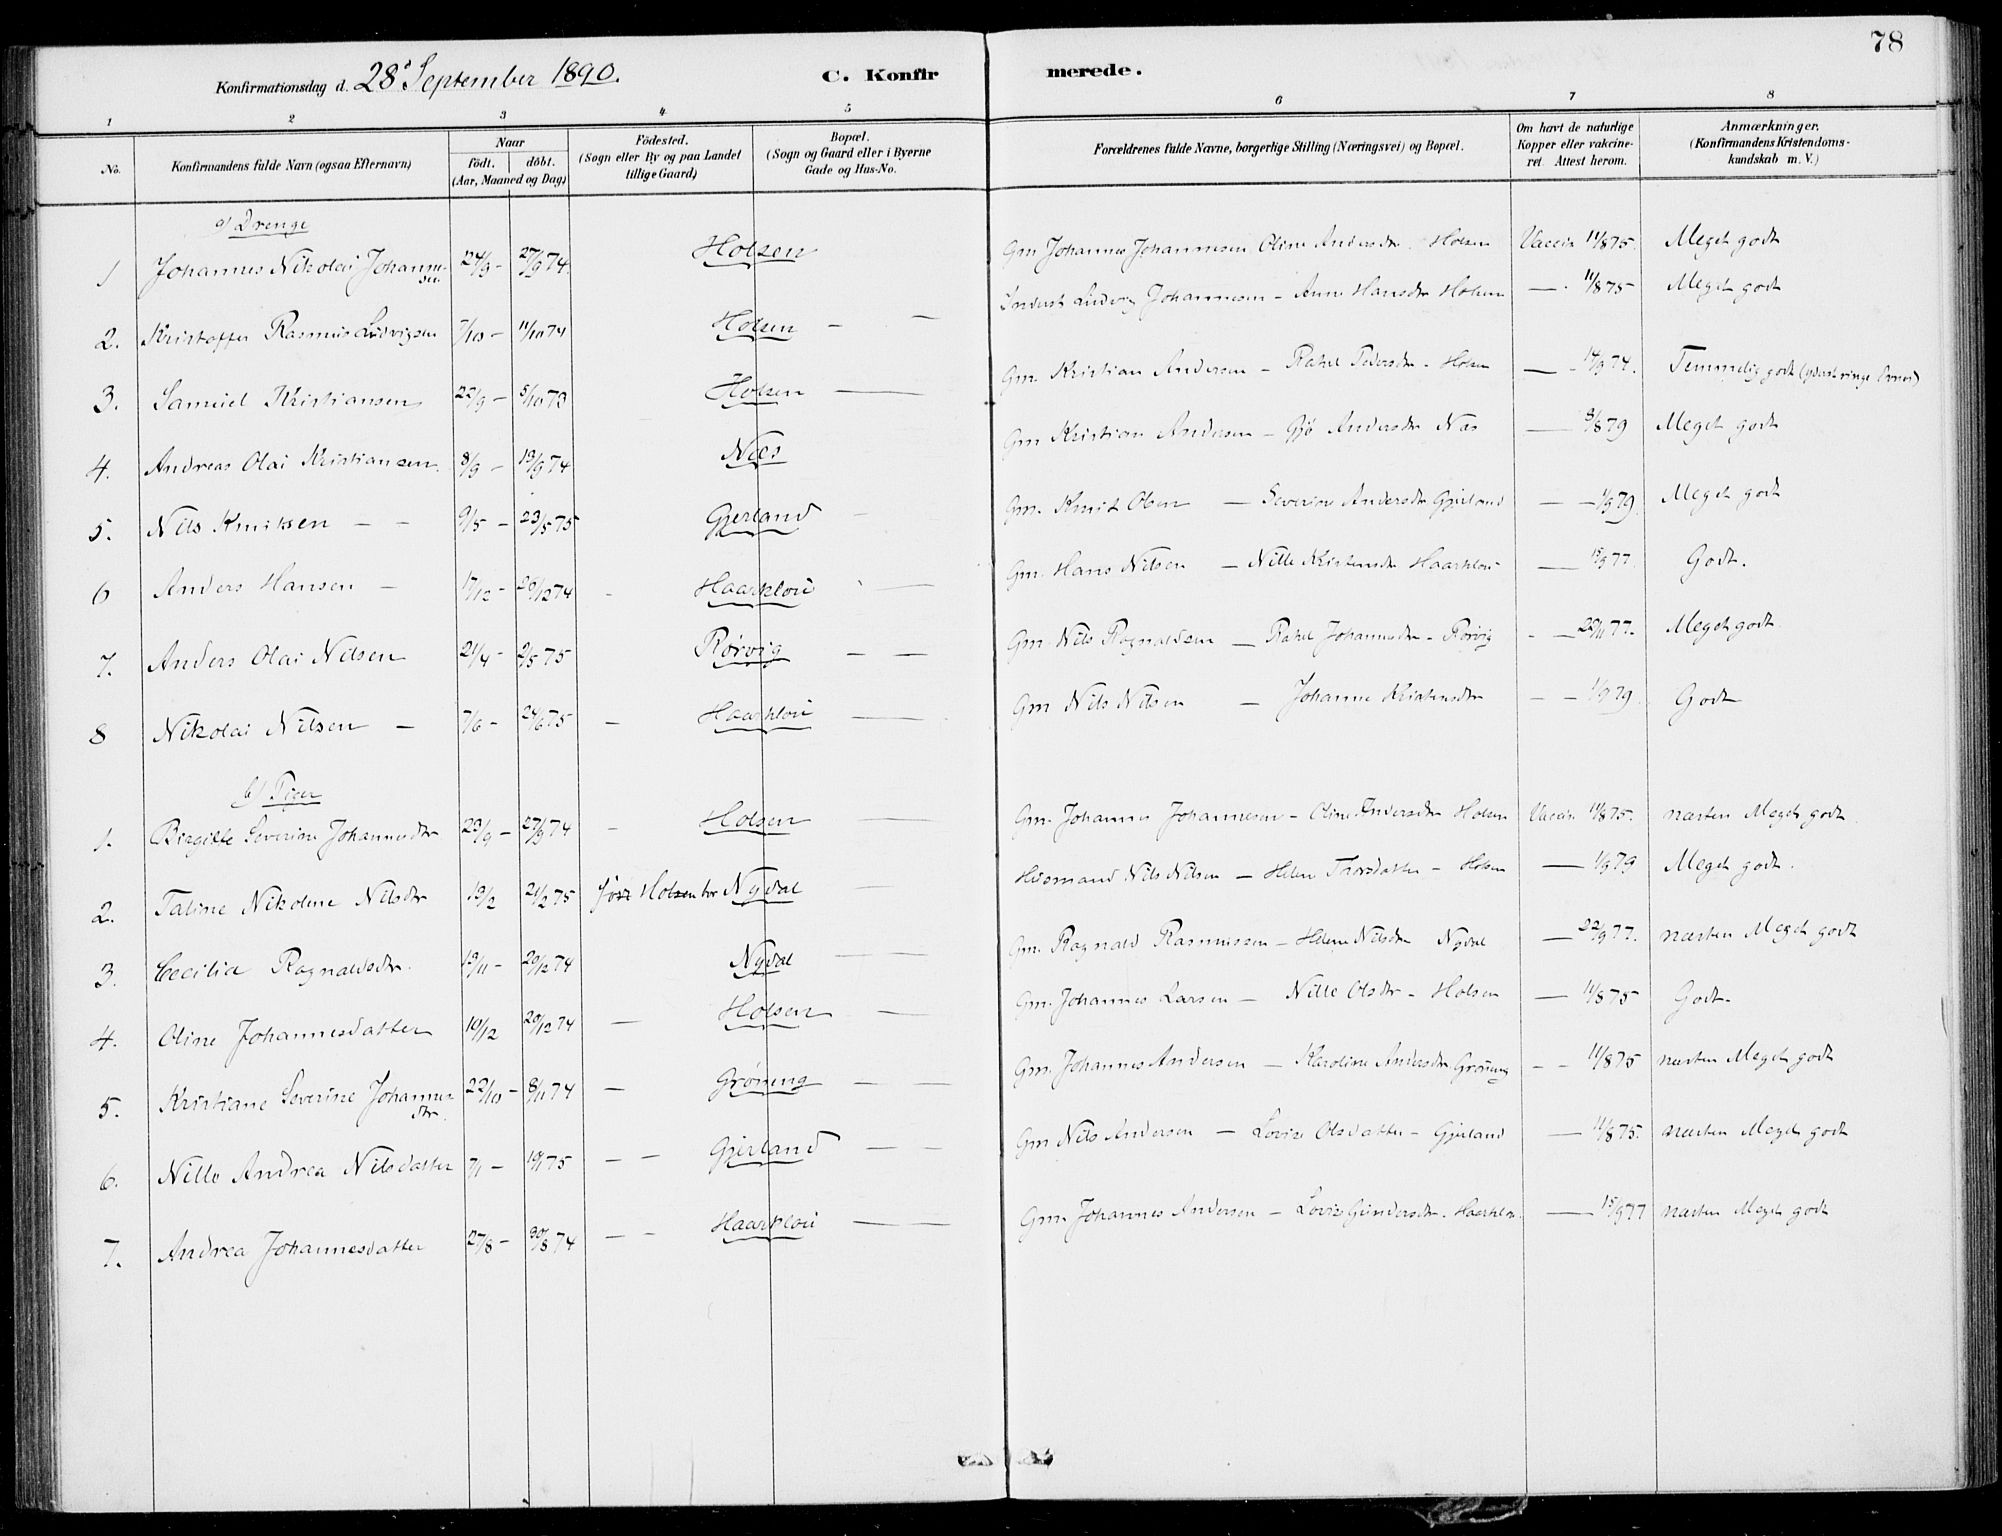 78
Konfirmationsdag d. 28d September 1890. C. Konfirmerede.
1 2 3 4 5 6 7 8
No. Konfirmandens fulde Navn (ogsaa Efternavn) Naar födt. döbt. (Aar, Maaned og Dag) Födested. (Sogn eller By og paa Landet tillige Gaard) Bopæl. (Sogn og Gaard eller i Byerne Gade og Hus-No. Forældrenes fulde Navne, borgerlige Stilling (Næringsvei) og Bopæl. Om havt de naturlige Kopper eller vakcineret. Attest herom. Anmærkninger. (Konfirmandens Kristendomskundskab m. V.)
a/ Drenge
1 Johannes Nikolai Johannessen 24/9 – 27/9 74. Holsen Gm Johannes Johannesen Oline Andersdr. Holsen Vaccin 11/8 75. Meget godt
2. Kristoffer Rasmus Ludvigsen 7/10 – 11/10 74 Holsen – — Ludvig Johannesen – Anne Hansdr Holsen — 11/8 75 Meget godt
3. Samuel Kristiansen 22/9 – 5/10 73 Holsen — Gm. Kristian Andersen – Rakel Pedersdr – Holsen — 14/9 74. Temmelig godt
4. Andreas Olai Kristiansen. 8/9 – 13/9 74 Næs Gm Kristian Andersen – Gjø Andersdr Næs — 8/8 79 Meget godt
5. Nils Knutsen – – 9/5 – 23/5 75 Gjerland – Gm. Knut Olsen — Severine Andersdr Gjerland — 1/9 79. Meget godt
6 Anders Hansen – 17/12 – 28/12 74 - Haarklou — Gm. Hans Nilsen – Nille Kristensdr Haarklou — 15/9 77. Godt.
7. Anders Olai Nilsen 21/4 – 2/5 75 Rørvig — — Gm. Nils Ragnaldsen — Rakel Johannesdr – Rørvig - — 22/11 77. Meget godt.
8 Nikolai Nilsen – 7/6 – 24/6 75 – Haarklou — Gm Nils Nilsen – Johanne Kristensdr – – 1/9 79. Godt
b/ Piger
1. Birgitte Severine Johannesdr 23/9 – 27/9 74 – Holsen — Gm. Johannes Johannesen – Oline Andersdr Holsen Vaccin. 11/8 75. næsten Meget godt.
2. Taline Nikoline Nilsdr 13/2 21/2 75 født Holsen bor Nydal — Husmand Nils Nilsen – Helene Thorsdatter – Holsen — 1/9 79 Meget godt.
3. Cecilia Ragnaldsdr. 13/11 – 20/12 74 Nydal — — Gm. Ragnald Rasmussen – Helene Nilsdr Nydal — 22/9 77. næsten Meget godt
4. Oline Johannesdatter 10/12 20/12 74 — Holsen — Gm. Johannes Larsen – Nille Olsdr – Holsen — 11/8 75 Godt.
5. Kristiane Severine Johannesdr. 22/10 – 8/11 74 — Grøneng — — Gm. Johannes Andersen – Karoline Andersdr Grøneng – – 11/8 75 næsten Meget godt
6. Nille Andrea Nilsdatter 7/1 – 10/1 75 — — Gjerland — — Gm Nils Andersen – Lovise Olsdatter – Gjerland — 11/8 75. næsten Meget godt
7. Andrea Johannesdatter 27/8 – 30/8 74 — — Haarklou — — Gm. Johannes Andersen – Lovise Gundersdr. Haarklou — 15/9 77 næsten Meget godt